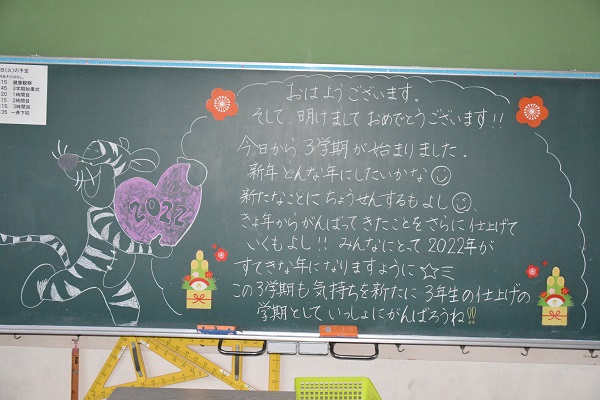 日(火)の予定
15 健康観察
45 3学期始業式
20 1時間目
15 2時間目
15 3時間目
35 一斉下校
2022
おはようございます。
そして、明けまして おめでとうございます!!
今日から 3学期が始まりました。
新年 どんな年にしたいかな
新たなことに ちょうせんするもよし
きょ年からがんばってきたことをさらに 仕上げて
いくもよし!! みんなにとって 2022年が
すてきな年になりますように☆ミ
この3学期も 気持ちを新たに 3年生の仕上げの
学期として いっしょにがんばろうね!!